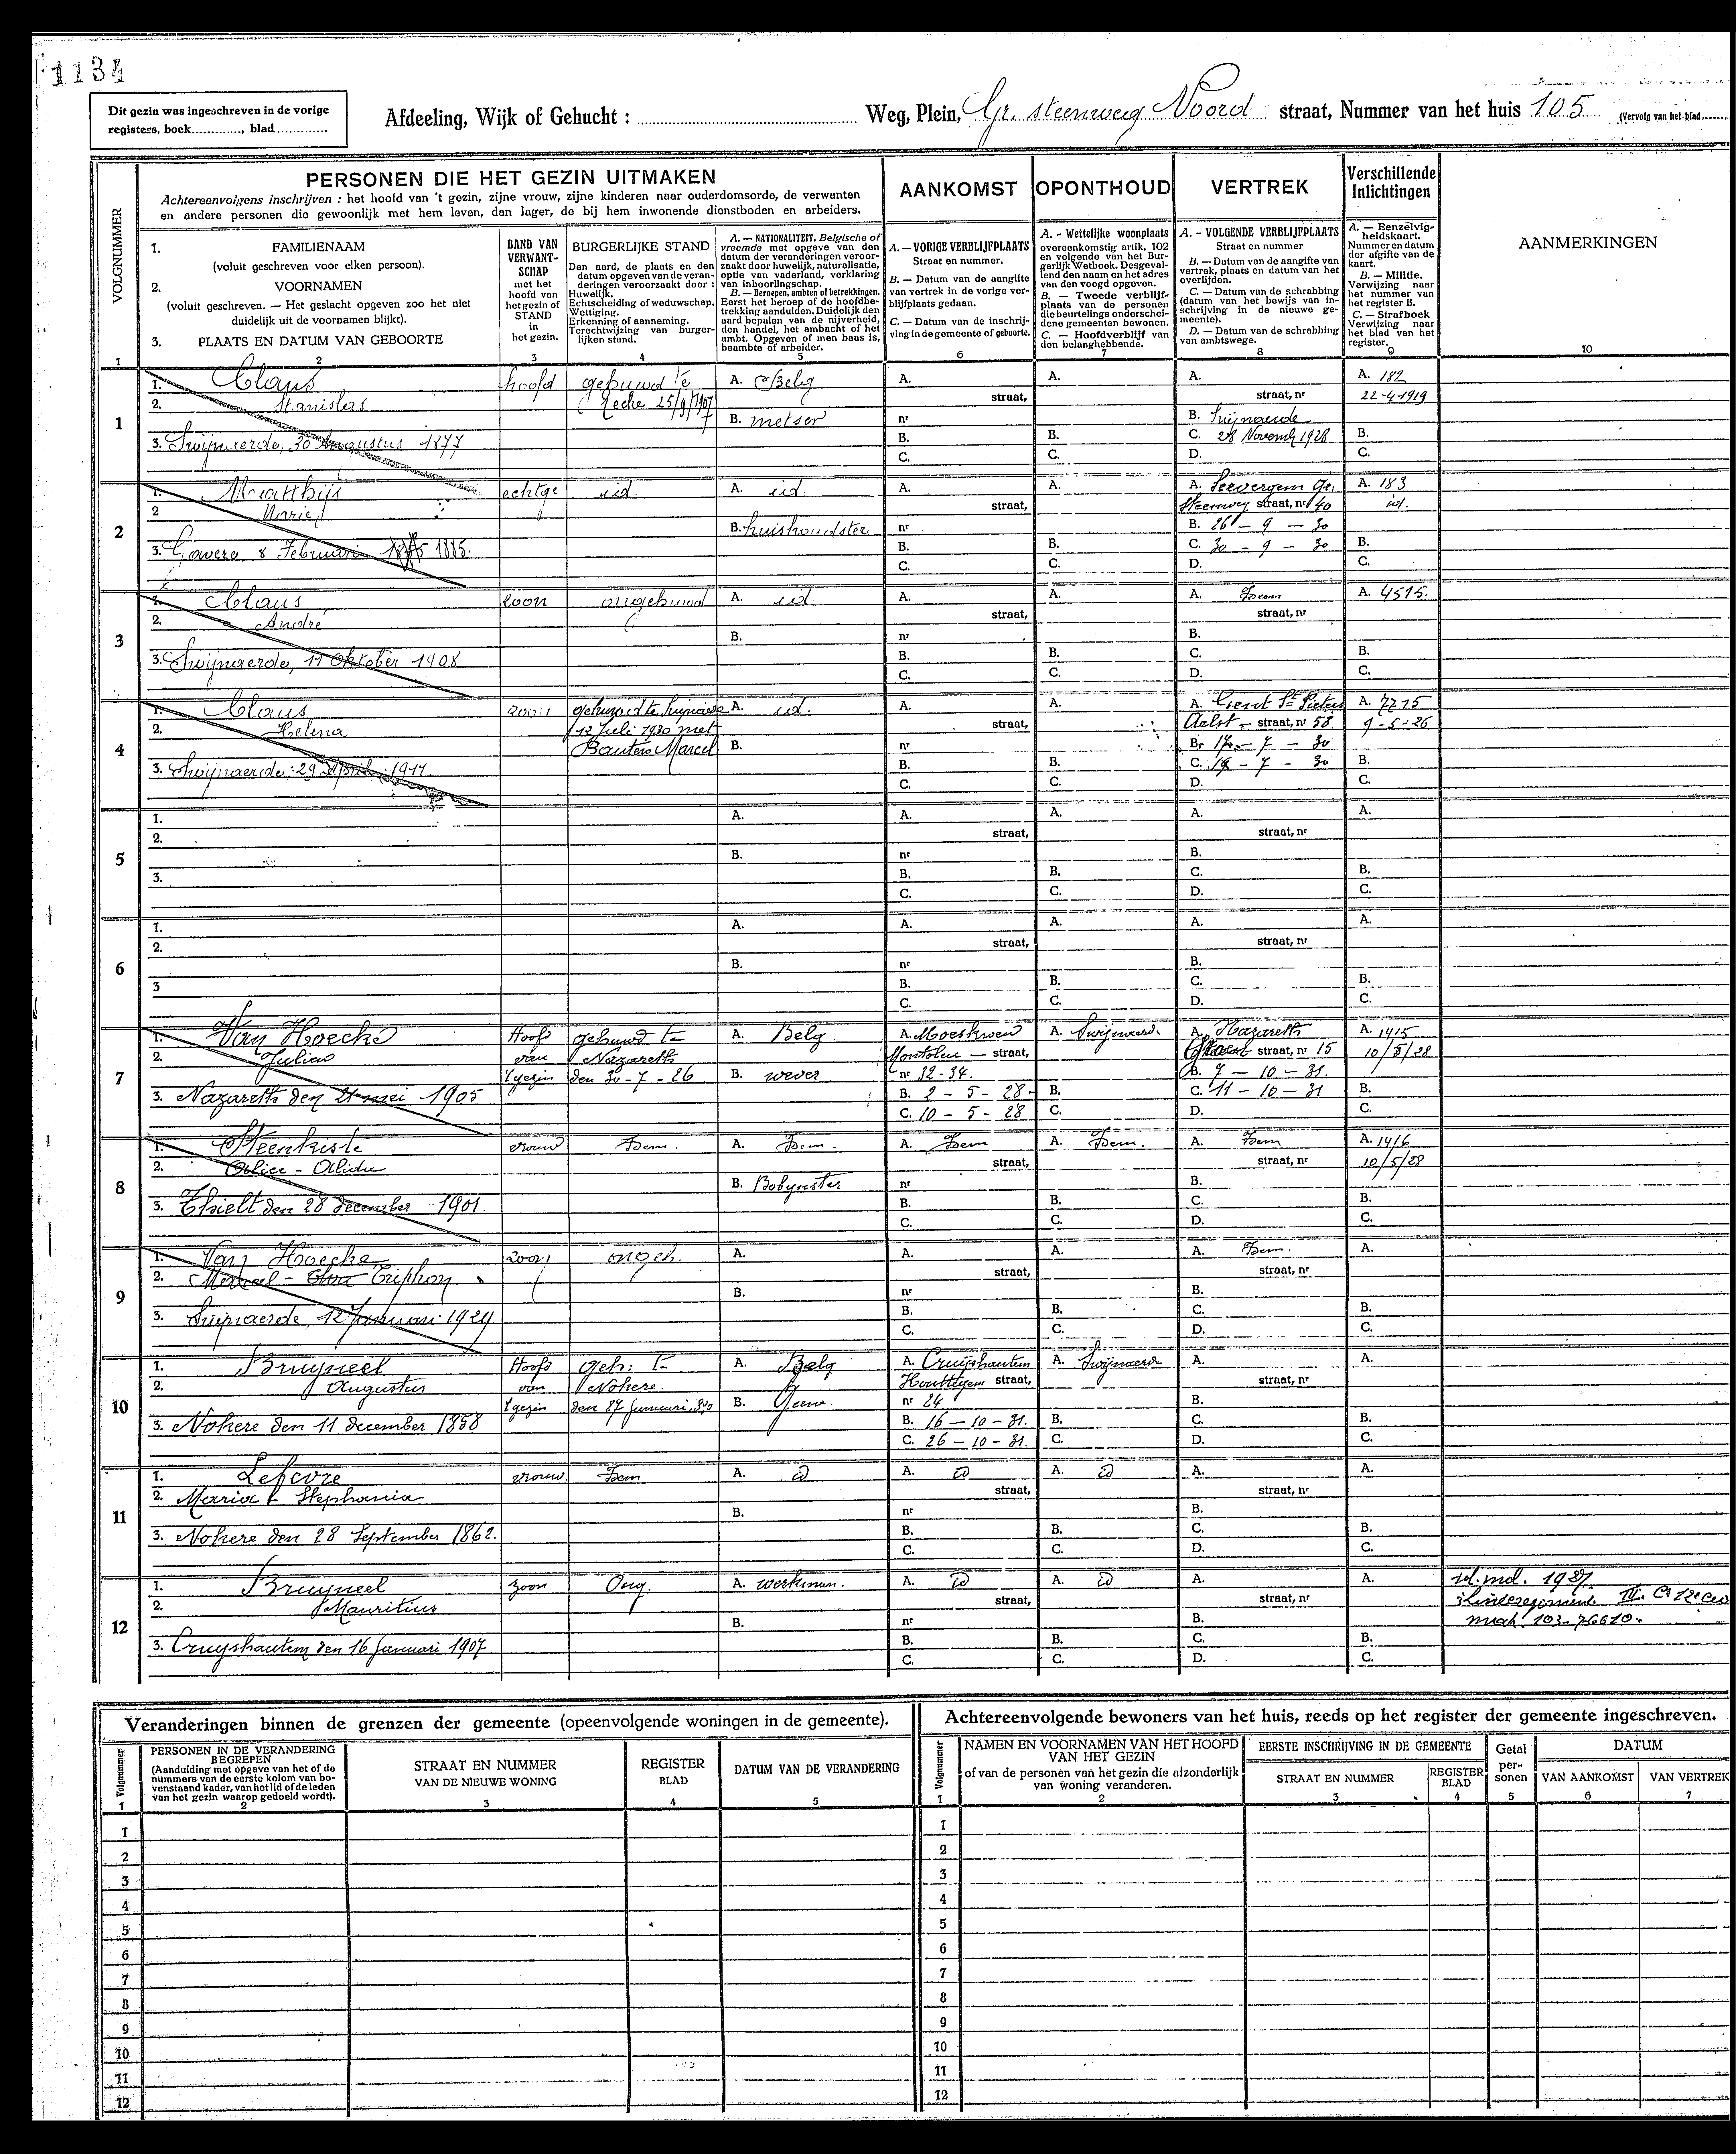 1134
Dit gezin was ingeschreven in de vorige
registers, boek............, blad.............
Afdeeling, Wijk of Gehucht : ............ Weg, Plein, Gr. steenweg Noord straat, Nummer van het huis 105 (Vervolg van het blad........
VOLGNUMMER
PERSONEN DIE HET GEZIN UITMAKEN
Achtereenvolgens inschrijven : het hoofd van 't gezin, zijne vrouw, zijne kinderen naar ouderdomsorde, de verwanten
en andere personen die gewoonlijk met hem leven, dan lager, de bij hem inwonende dienstboden en arbeiders.
AANKOMST
OPONTHOUD
VERTREK
Verschillende
Inlichtingen
AANMERKINGEN
1. FAMILIENAAM
(voluit geschreven voor elken persoon).
2. VOORNAMEN
(voluit geschreven. — Het geslacht opgeven zoo het niet
duidelijk uit de voornamen blijkt).
3. PLAATS EN DATUM VAN GEBOORTE
BAND VAN
VERWANT-
SCHAP
met het
hoofd van
het gezin of
STAND
in
het gezin.
BURGERLIJKE STAND
Den aard, de plaats en den
datum opgeven van de veran-
deringen veroorzaakt door :
Huwelijk.
Echtscheiding of weduwschap.
Wettiging.
Erkenning of aanneming.
Terechtwijzing van burger-
lijken stand.
A. — NATIONALITEIT. Belgische of
vreemde met opgave van den
datum der veranderingen veroor-
zaakt door huwelijk, naturalisatie,
optie van vaderland, verklaring
van inboorlingschap.
B. — Beroepen, ambten of betrekkingen.
Eerst het beroep of de hoofdbe-
trekking aanduiden. Duidelijk den
aard bepalen van de nijverheid,
den handel, het ambacht of het
ambt. Opgeven of men baas is,
beambte of arbeider.
A. — VORIGE VERBLIJFPLAATS
Straat en nummer.
B. — Datum van de aangifte
van vertrek in de vorige ver-
blijfplaats gedaan.
C. — Datum van de inschrij-
ving in de gemeente of geboorte.
A. - Wettelijke woonplaats
overeenkomstig artik. 102
en volgende van het Bur-
gerlijk Wetboek. Desgeval-
lend den naam en het adres
van den voogd opgeven.
B. — Tweede verblijf-
plaats van de personen
die beurtelings onderschei-
dene gemeenten bewonen.
C. — Hoofdverblijf van
den belanghebbende.
A. - VOLGENDE VERBLIJFPLAATS
Straat en nummer
B. — Datum van de aangifte van
vertrek, plaats en datum van het
overlijden.
C. — Datum van de schrabbing
(datum van het bewijs van in-
schrijving in de nieuwe ge-
meente).
D. — Datum van de schrabbing
van ambtswege.
A. — Eenzelvig-
heidskaart.
Nummer en datum
der afgifte van de
kaart.
B. — Militie.
Verwijzing naar
het nummer van
het register B.
C. — Strafboek
Verwijzing naar
het blad van het
register.
1 2 3 4 5 6 7 8 9 10
1 1. Claus hoofd gehuwd te A. Belg A. A. A. A. 182
2. Stanislas 25/9/1907 straat, straat, nr 22-4-1919
B. metser nr B. Swijnaerde
3. Swijnaerde, 30 Augustus 1877 B. B. C. 28 Novemb 1928 B.
C. C. D. C.
2 1. Matthijs echtge id A. id A. A. A. Seevergem Gr. A. 183
2 Marie straat, Steenweg straat, nr 40 id.
B. huishoudster nr B. 26 - 9 - 30
3. Gavere, 8 Februari 1885. B. B. C. 30 - 9 - 30 B.
C. C. D. C.
3 1. Claus zoon ongehuwd A. id A. A. A. Idem A. 4515.
2. André straat, straat, nr
B. nr B.
3. Swijnaerde, 11 Oktober 1908 B. B. C. B.
C. C. D. C.
4 1. Claus zoon gehuwd te A. id. A. A. A. Gent St Pieters A. 7215
2. Helena 12 Juli 1930 met straat, Aelst - straat, nr 58 9-5-26
Bauters Marcel B. nr B. 17 - 7 - 30
3. Swijnaerde, 29 April 1911 B. B. C. 19 - 7 - 30 B.
C. C. D. C.
5 1. A. A. A. A. A.
2. straat, straat, nr
B. nr B.
3. B. B. C. B.
C. C. D. C.
6 1. A. A. A. A. A.
2. straat, straat, nr
B. nr B.
3 B. B. C. B.
C. C. D. C.
7 1. Van Hoecke Hoofd gehuwd te A. Belg A. Moeskroen A. Swijnaerd. A. Nazareth A. 1415
2. Julien van Nazareth straat, straat, nr 15 10/5/28
't gezin den 30-7-26 B. wever nr 32-34. B. 7 - 10 - 31.
3. Nazareth den 21 mei 1905 B. 2 - 5 - 28 B. C. 11 - 10 - 31 B.
C. 10 - 5 - 28 C. D. C.
8 1. Steenkiste vrouw Idem. A. Idem. A. Idem A. Idem. A. Idem A. 1416
2. Alice - Alida straat, straat, nr 10/5/28
B. Bobynster nr B.
3. Thielt den 28 december 1901. B. B. C. B.
C. C. D. C.
9 1. Van Hoecke zoon ongeh. A. A. A. A. Idem. A.
2. Marcel - Triphon straat, straat, nr
B. nr B.
3. Swijnaerde, 12 Januari 1929 B. B. C. B.
C. C. D. C.
10 1. Bruyneel Hoofd geh: te A. Belg A. Cruijshautem A. Swijnaerd A. A.
2. Augustus van Nokere. Houttegem straat, straat, nr
't gezin den 27 Januari B. Geen. nr 24 B.
3. Nokere den 11 december 1858 B. 16 - 10 - 31. B. C. B.
C. 26 - 10 - 31. C. D. C.
11 1. Lefevre vrouw. Idem A. id A. id A. id A. A.
2. Maria - Stephania straat, straat, nr
B. nr B.
3. Nokere den 28 September 1862. B. B. C. B.
C. C. D. C.
12 1. Bruyneel zoon Ong. A. werkman. A. id A. id A. A. 1927
2. Mauritius straat, straat, nr
B. nr B. 103-76610.
3. Cruyshautem den 16 Januari 1907 B. B. C. B.
C. C. D. C.
Veranderingen binnen de grenzen der gemeente (opeenvolgende woningen in de gemeente).
Volgnummer
PERSONEN IN DE VERANDERING
BEGREPEN
(Aanduiding met opgave van het of de
nummers van de eerste kolom van bo-
venstaand kader, van het lid of de leden
van het gezin waarop gedoeld wordt).
STRAAT EN NUMMER
VAN DE NIEUWE WONING
REGISTER
BLAD
DATUM VAN DE VERANDERING
1 2 3 4 5
1
2
3
4
5
6
7
8
9
10
11
12
Achtereenvolgende bewoners van het huis, reeds op het register der gemeente ingeschreven.
Volgnummer
NAMEN EN VOORNAMEN VAN HET HOOFD
VAN HET GEZIN
of van de personen van het gezin die afzonderlijk
van woning veranderen.
EERSTE INSCHRIJVING IN DE GEMEENTE
STRAAT EN NUMMER
REGISTER
BLAD
Getal
per-
sonen
DATUM
VAN AANKOMST
VAN VERTREK
1 2 3 4 5 6 7
1
2
3
4
5
6
7
8
9
10
11
12